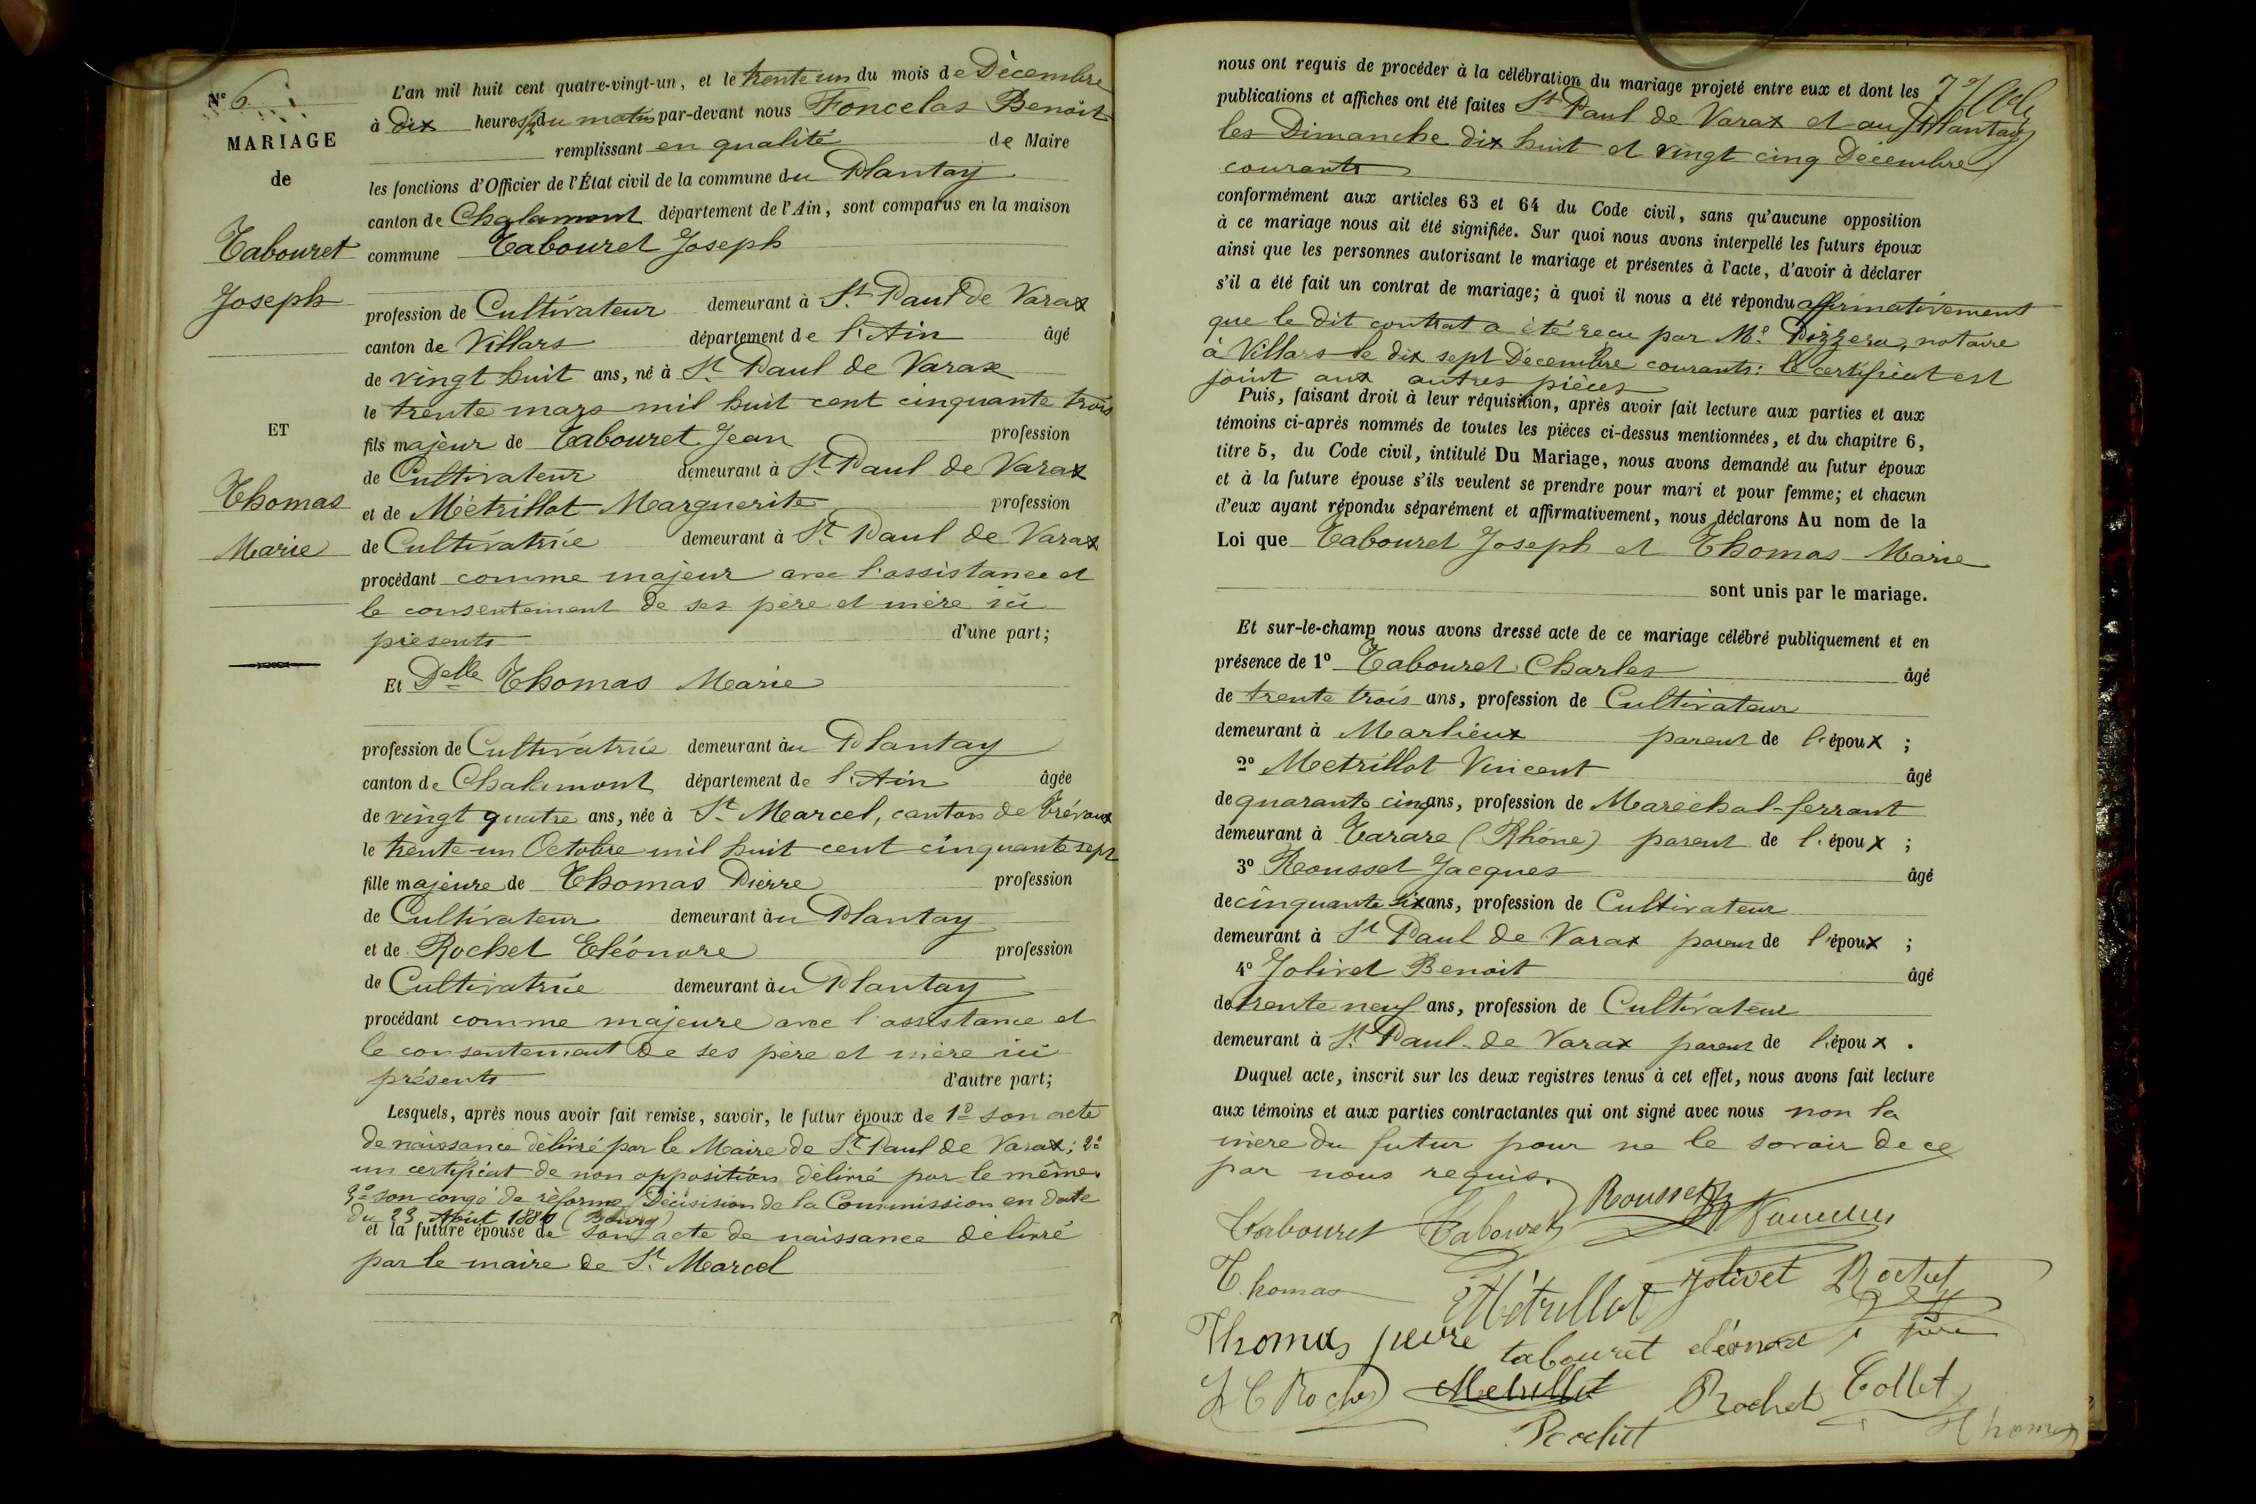 Nº 6
MARIAGE
de
Tabouret
Joseph
ET
Thomas
Marie
L'an mil huit cent quatre-vingt-un, et le trente un du mois de Décembre
à dix heures ½ du matin par-devant nous Foncelas Benoit
remplissant en qualité de Maire
les fonctions d'Officier de l'État civil de la commune du Plantay
canton de Chalamont département de l'Ain, sont comparus en la maison
commune Tabouret Joseph
profession de Cultivateur demeurant à St Paul de Varax
canton de Villars département de l'Ain âgé
de vingt huit ans, né à St Paul de Varax
le trente mars mil huit cent cinquante trois
fils majeur de Tabouret Jean profession
de Cultivateur demeurant à St Paul de Varax
et de Métrillot Marguerite profession
de Cultivatrice demeurant à St Paul de Varax
procédant comme majeur avec l'assistance et
le consentement de ses père et mère ici
présents d'une part;
Et Delle Thomas Marie
profession de Cultivatrice demeurant au Plantay
canton de Chalamont département de l'Ain âgée
de vingt quatre ans, née à St Marcel, canton de Trévoux
le trente-un Octobre mil huit cent cinquante sept
fille majeure de Thomas Pierre profession
de Cultivateur demeurant au Plantay
et de Rochet Eléonore profession
de Cultivatrice demeurant au Plantay
procédant comme majeure avec l'assistance et
le consentement de ses père et mère ici
présents d'autre part;
Lesquels, après nous avoir fait remise, savoir, le futur époux de 1º son acte
de naissance délivré par le Maire de St Paul de Varax; 2º
un certificat de non opposition délivré par le même.
3º son congé de réforme, Décisision de la Commission en date
du 23 Août 1880 (Bourg)
et la future épouse de son acte de naissance délivré
par le maire de St Marcel
nous ont requis de procéder à la célébration du mariage projeté entre eux et dont les
publications et affiches ont été faites St Paul de Varax et au Plantay
les Dimanche dix huit et vingt cinq Décembre
courants
conformément aux articles 63 et 64 du Code civil, sans qu'aucune opposition
à ce mariage nous ait été signifiée. Sur quoi nous avons interpellé les futurs époux
ainsi que les personnes autorisant le mariage et présentes à l'acte, d'avoir à déclarer
s'il a été fait un contrat de mariage; à quoi il nous a été répondu affirmativement
que le dit contrat a été reçu par Me Pizzera, notaire
à Villars le dix sept Décembre courants: le certificat est
joint aux autres pièces
Puis, faisant droit à leur réquisition, après avoir fait lecture aux parties et aux
témoins ci-après nommés de toutes les pièces ci-dessus mentionnées, et du chapitre 6,
titre 5, du Code civil, intitulé Du Mariage, nous avons demandé au futur époux
et à la future épouse s'ils veulent se prendre pour mari et pour femme; et chacun
d'eux ayant répondu séparément et affirmativement, nous déclarons Au nom de la
Loi que Tabouret Joseph et Thomas Marie
sont unis par le mariage.
Et sur-le-champ nous avons dressé acte de ce mariage célébré publiquement et en
présence de 1º Tabouret Charles âgé
de trente trois ans, profession de Cultivateur
demeurant à Marlieux parent de l'époux ;
2º Metrillot Vincent âgé
de quarante cinq ans, profession de Maréchal-ferrant
demeurant à Tarare (Rhône) parent de l'époux ;
3º Rousset Jacques âgé
de cinquante six ans, profession de Cultivateur
demeurant à St Paul de Varax parent de l'époux ;
4º Jolivet Benoit âgé
de trente neuf ans, profession de Cultivateur
demeurant à St Paul de Varax parent de l'époux .
Duquel acte, inscrit sur les deux registres tenus à cet effet, nous avons fait lecture
aux témoins et aux parties contractantes qui ont signé avec nous non la
mère du futur pour ne le savoir de ce
par nous requis.
Tabouret Tabouret Rousset
Thomas Métrillot Jolivet Rochet
Thomas pierre tabouret
Rochet Metrillot Rochet Tollet
Rochet Thomas